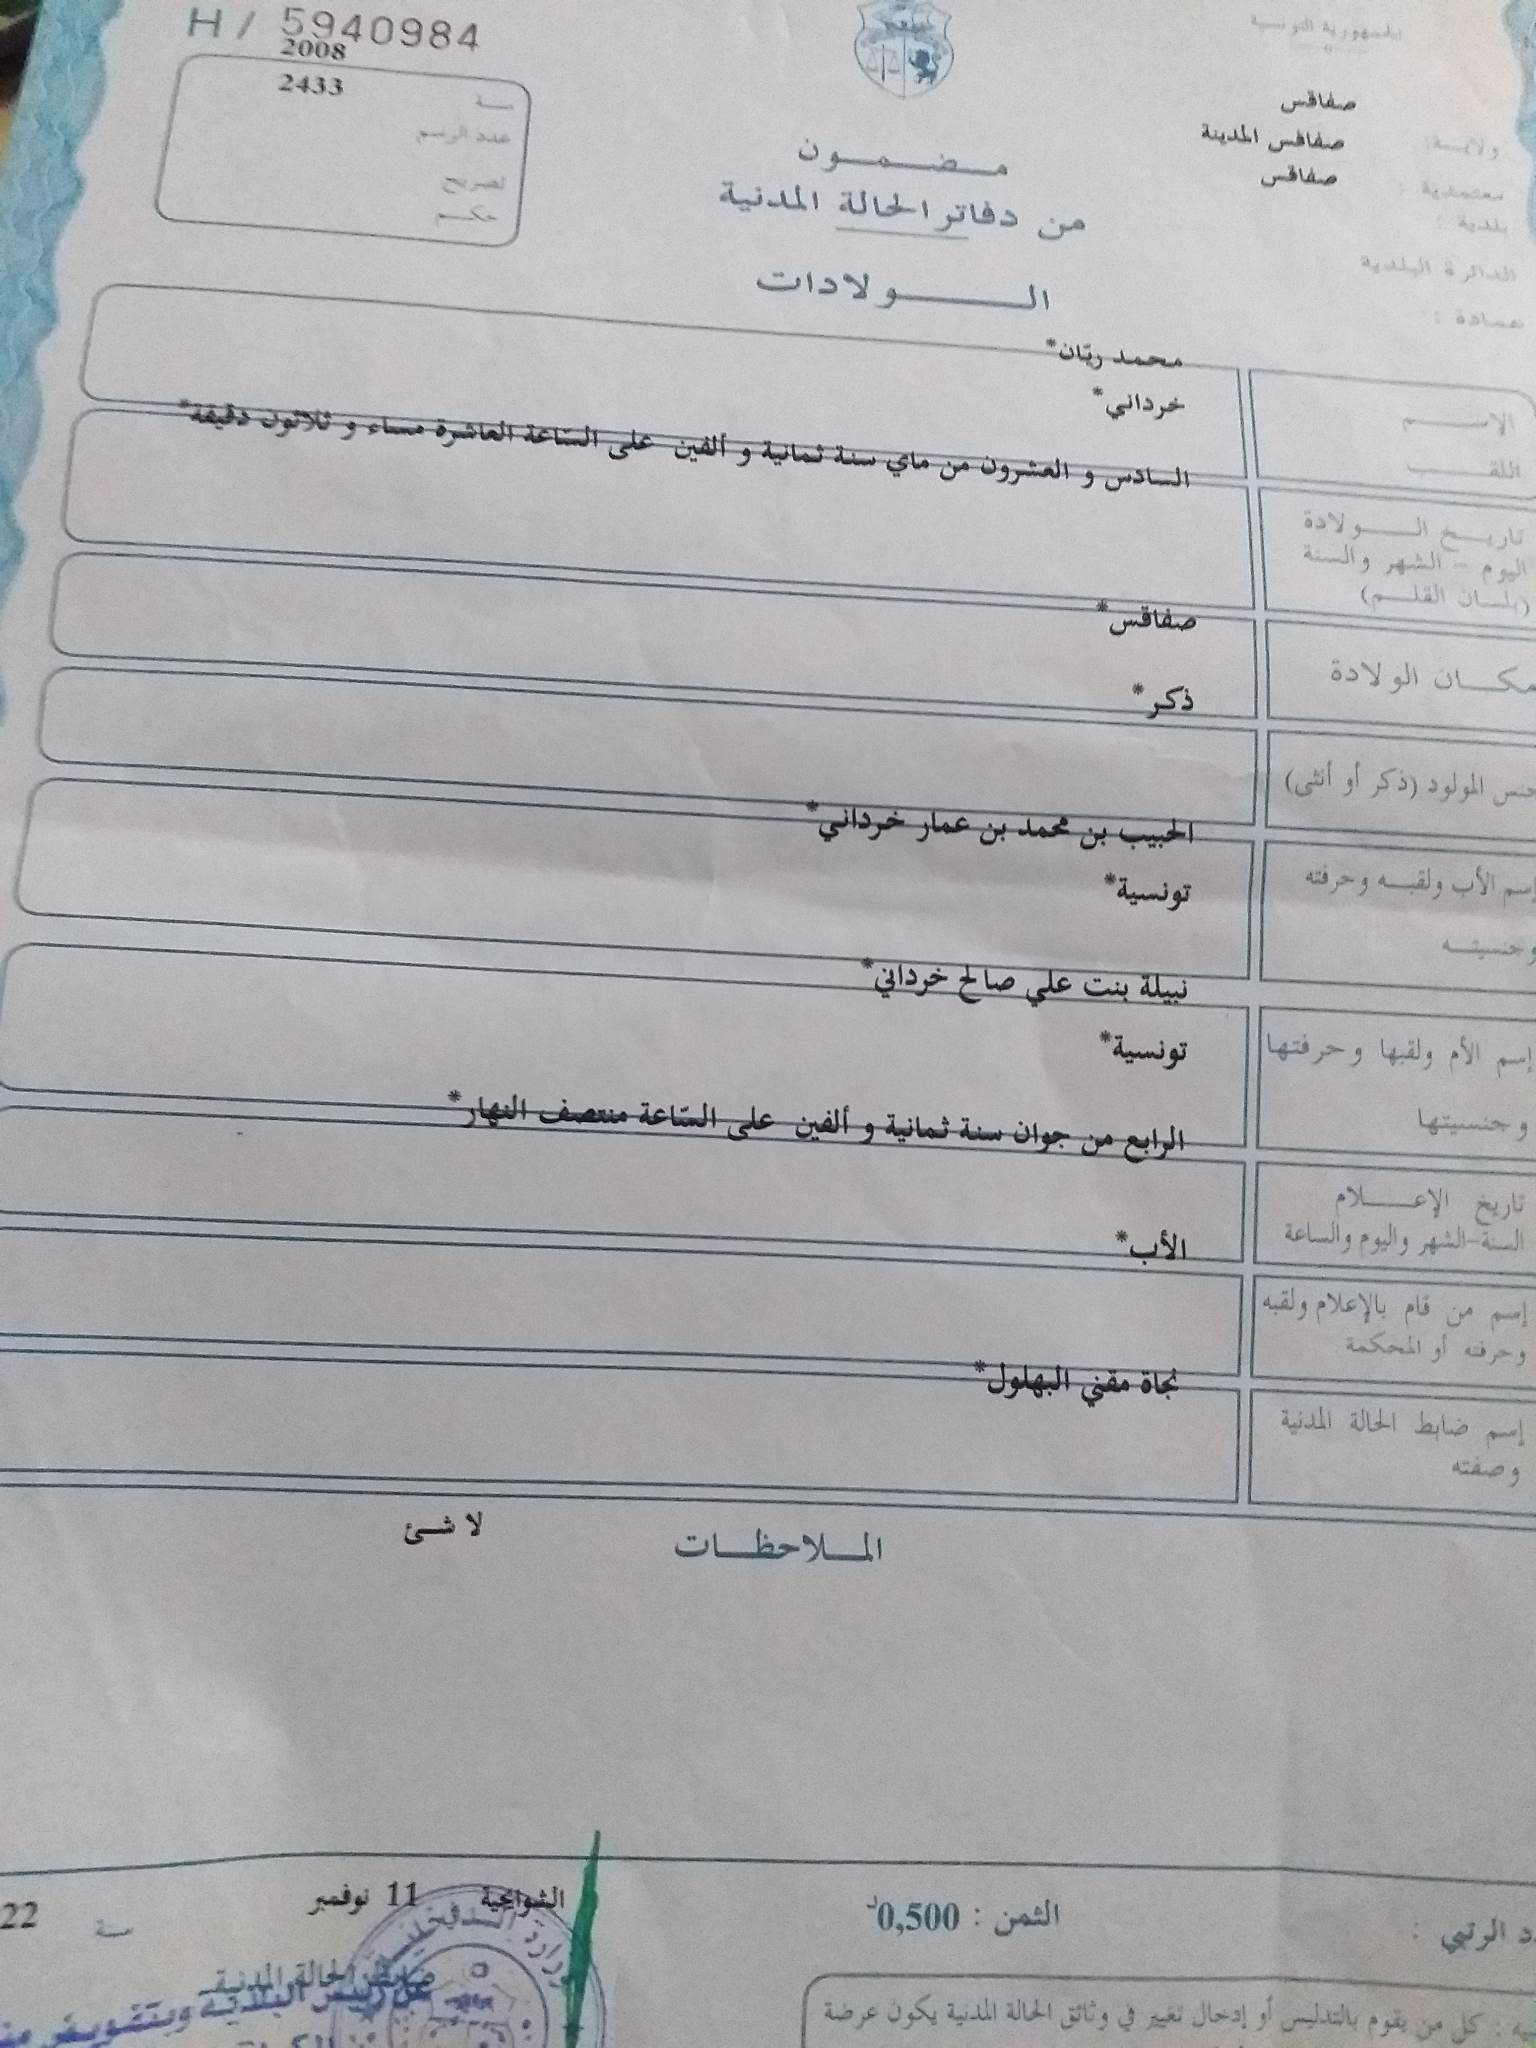 H / 5940984
الجمهورية التونسية
2008
سنة
2433
عدد الرسم
تصريح
حكم
صفاقس
ولاية:
صفاقس المدينة
معتمدية :
صفاقس
بلدية :
الدائرة البلدية
عمادة :
مضمون
من دفاتر الحالة المدنية
الولادات
محمد ريّان*
الاسم
خرداني*
اللقب
السادس و العشرون من ماي سنة ثمانية و ألفين على السّاعة العاشرة مساء و ثلاثون دقيقة*
تاريخ الولادة
اليوم - الشهر والسنة
(بلسان القلم)
صفاقس*
مكان الولادة
ذكر*
جنس المولود (ذكر أو أنثى)
الحبيب بن محمد بن عمار خرداني*
إسم الأب ولقبه وحرفته
تونسية*
وجنسيته
نبيلة بنت علي صالح خرداني*
إسم الأم ولقبها وحرفتها
تونسية*
وجنسيتها
الرابع من جوان سنة ثمانية و ألفين على السّاعة منتصف النهار*
تاريخ الإعلام
السنة-الشهر واليوم والساعة
الأب*
إسم من قام بالإعلام ولقبه
وحرفته أو المحكمة
نجاة مقني البهلول*
إسم ضابط الحالة المدنية
وصفته
الملاحظات
لا شئ
الرتبي :
الثمن : 0,500د
الشوايحية 11 نوفمبر
سنة
22
ضابط الحالة المدنية
عن رئيس البلدية وبتفويض منه
: كل من يقوم بالتدليس أو إدخال تغيير في وثائق الحالة المدنية يكون عرضة